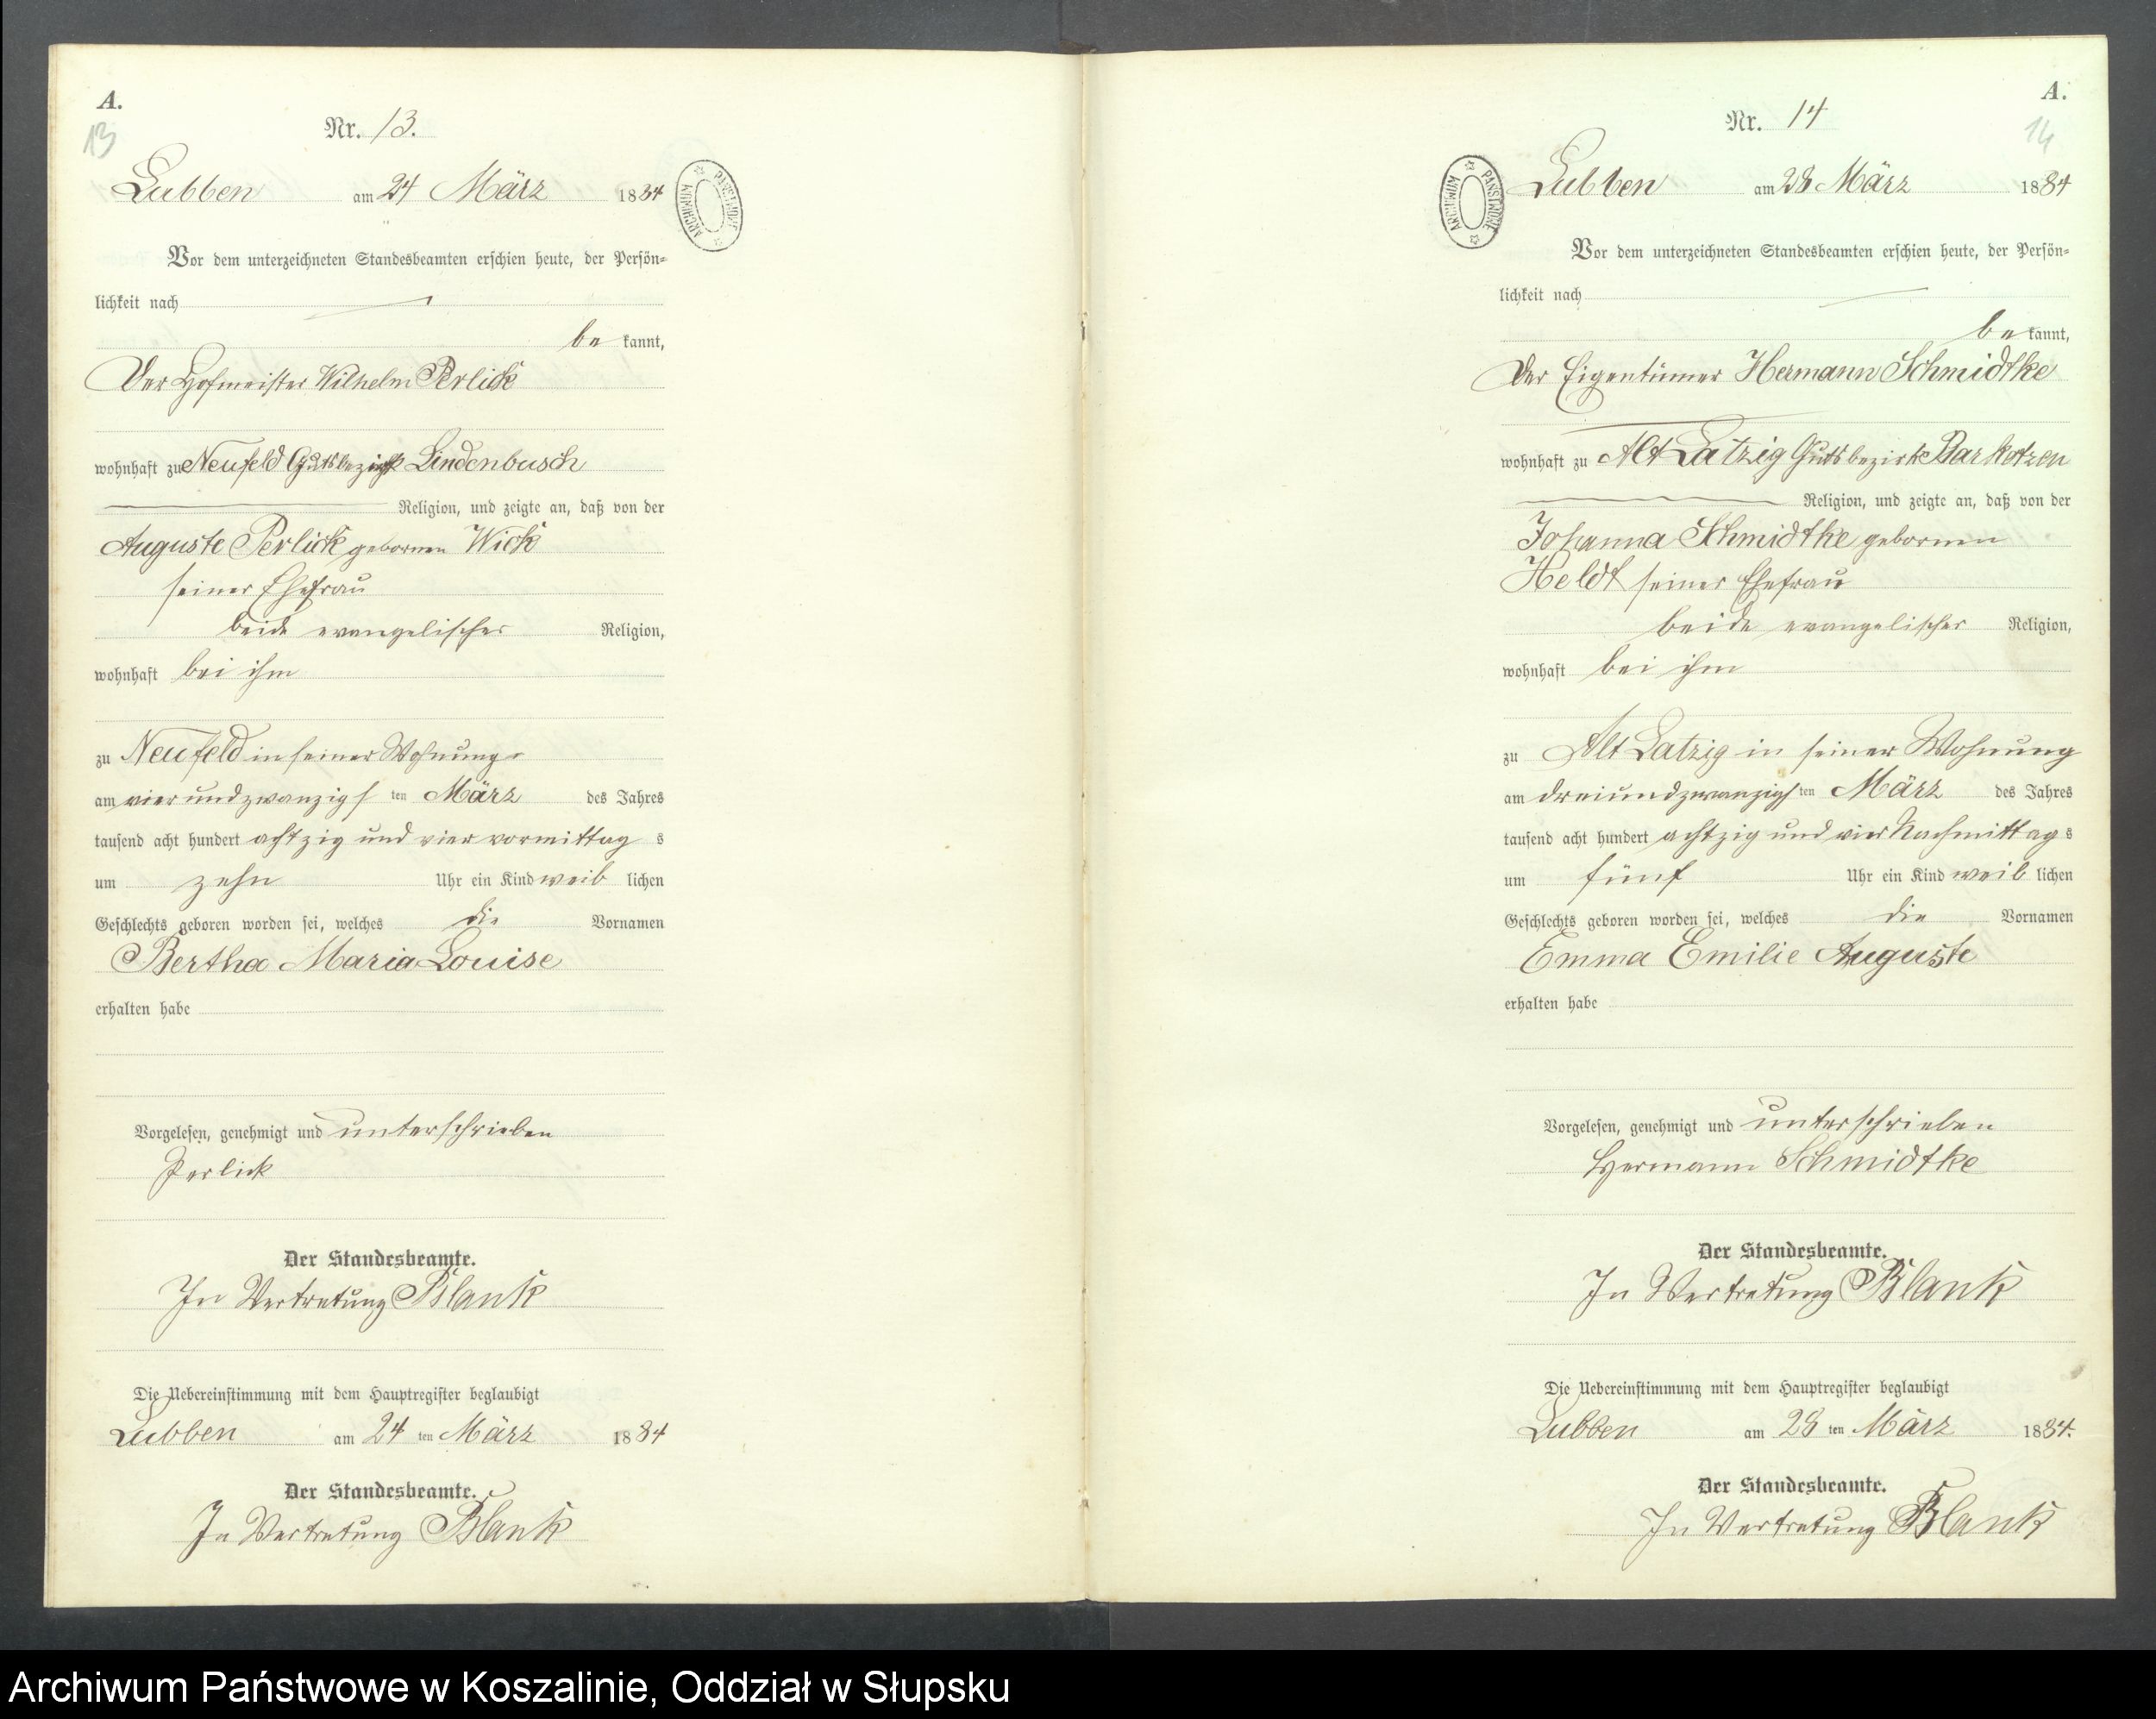 A.
13
Nr. 13.
Lubben am 24 März 1884
ARCHIWUM PAŃSTWOWE
Vor dem unterzeichneten Standesbeamten erschien heute, der Persön-
lichkeit nach
be kannt,
Der Hofmeister Wilhelm Perlick
wohnhaft zu Neufeld Gutsbezirk Lindenbusch
Religion, und zeigte an, daß von der
Auguste Perlick gebornen Wick
seiner Ehefrau
beide evangelischer Religion,
wohnhaft bei ihm
zu Neufeld in seiner Wohnung
am vier und zwanzigs ten März des Jahres
tausend acht hundert achtzig und vier vormittag s
um zehn Uhr ein Kind weib lichen
Geschlechts geboren worden sei, welches die Vornamen
Bertha Maria Louise
erhalten habe
Vorgelesen, genehmigt und unterschrieben
Perlick
Der Standesbeamte.
In Vertretung Blank
Die Uebereinstimmung mit dem Hauptregister beglaubigt
Lubben am 24 ten März 1884
Der Standesbeamte.
In Vertretung Blank
A.
14
Nr. 14
ARCHIWUM PAŃSTWOWE
Lubben am 28 März 1884
Vor dem unterzeichneten Standesbeamten erschien heute, der Persön-
lichkeit nach
be kannt,
Der Eigentümer Hermann Schmidtke
wohnhaft zu Alt Latzig Gutsbezirk Barkotzen
Religion, und zeigte an, daß von der
Johanna Schmidtke gebornen
Heldt seiner Ehefrau
beide evangelischer Religion,
wohnhaft bei ihm
zu Alt Latzig in seiner Wohnung
am dreiundzwanzigs ten März des Jahres
tausend acht hundert achtzig und vier Nachmittag s
um fünf Uhr ein Kind weib lichen
Geschlechts geboren worden sei, welches die Vornamen
Emma Emilie Auguste
erhalten habe
Vorgelesen, genehmigt und unterschrieben
Hermann Schmidtke
Der Standesbeamte.
In Vertretung Blank
Die Uebereinstimmung mit dem Hauptregister beglaubigt
Lubben am 28 ten März 1884.
Der Standesbeamte.
In Vertretung Blank
Archiwum Państwowe w Koszalinie, Oddział w Słupsku